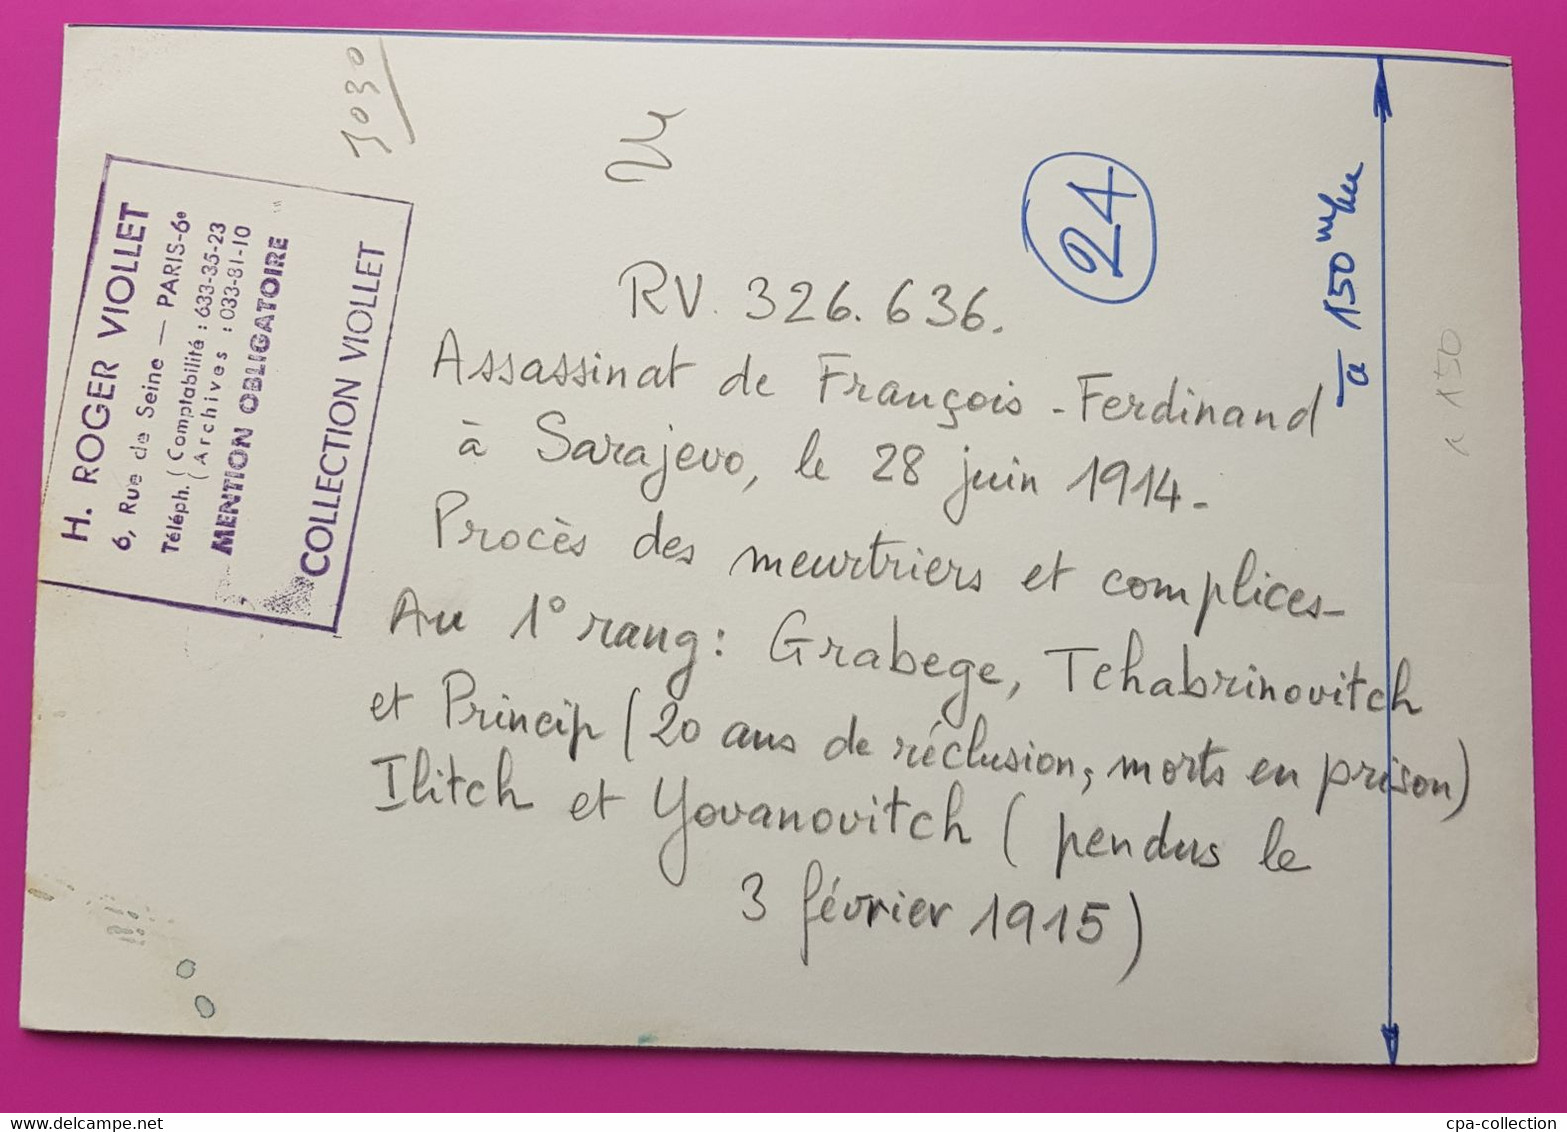 H. ROGER VIOLLET
6, Rue de Seine — PARIS-6e
Téléph. ( Comptabilité : 633-35-23
( Archives : 033-81-10
MENTION OBLIGATOIRE
COLLECTION VIOLLET
3030
24
à 150 m/m
150
RV. 326.636.
Assassinat de François-Ferdinand
à Sarajevo, le 28 juin 1914-
Procès des meurtriers et complices-
Au 1° rang: Grabege, Tchabrinovitch
et Princip (20 ans de réclusion, morts en prison)
Ilitch et Yovanovitch (pendus le
3 février 1915)
www.delcampe.net
cpa-collection